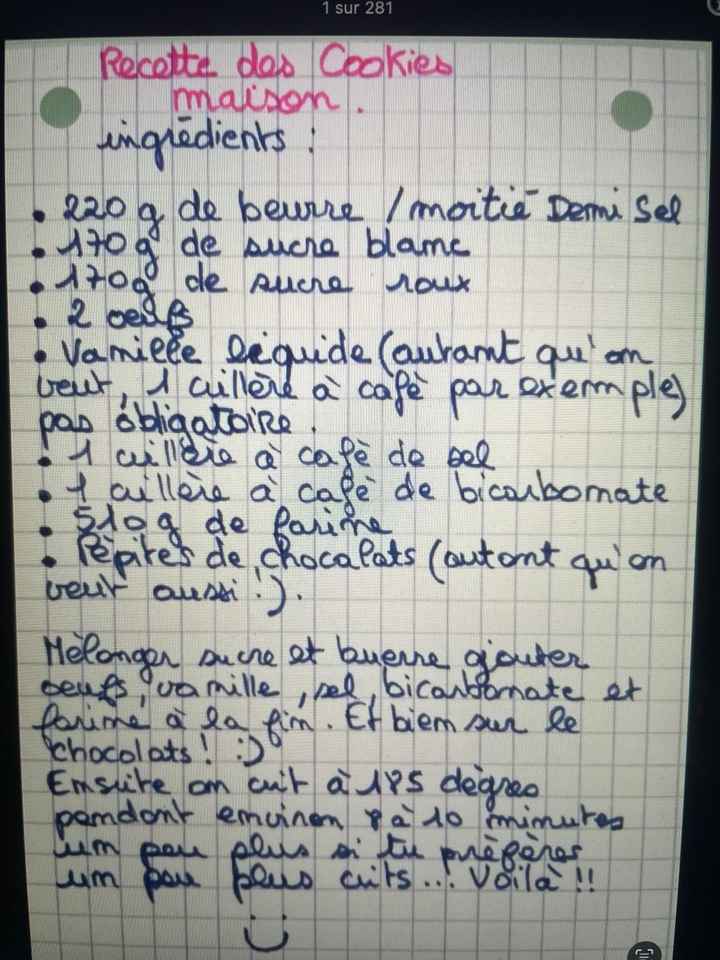 1 sur 281
Recette des Cookies
maison.
ingrédients :
• 220 g de beurre / moitié Demi Sel
• 170g de sucre blanc
• 170g de sucre roux
• 2 oeufs
• Vanille liquide (autant qu'on
veut, 1 cuillère à café par exemple)
pas obligatoire.
• 1 cuillère à café de sel
• 1 cuillère à café de bicarbonate
• 510g de farine
• Pépites de chocolats (autant qu'on
veut aussi !).
Mélanger sucre et buerre ajouter
oeufs, vanille, sel, bicarbonate et
farine à la fin. Et bien sur le
chocolats ! :)
Ensuite on cuit à 185 dégres
pendant environ 8 à 10 minutes
un peu plus si tu préfères
un peu plus cuits... ! Voilà !!
:)